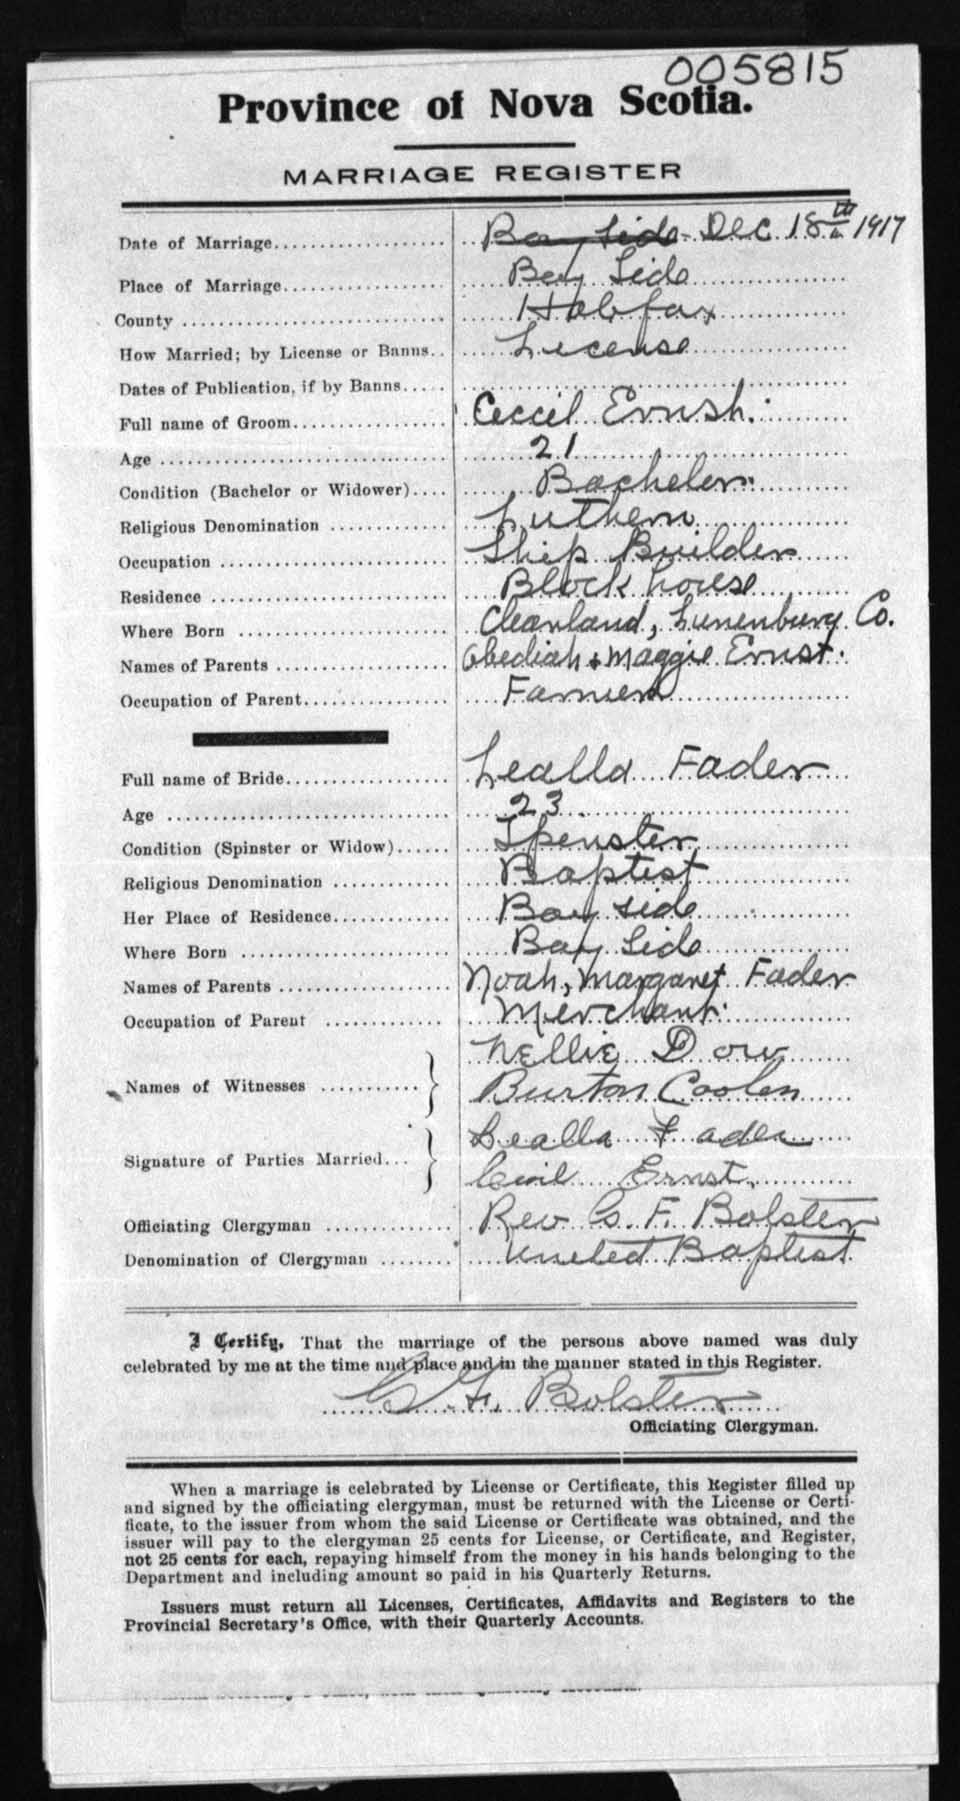 005815
Province of Nova Scotia.
MARRIAGE REGISTER
Date of Marriage................... Bay Side Dec 18th 1917
Place of Marriage................. Bay Side
County ............................ Halifax
How Married; by License or Banns.. License
Dates of Publication, if by Banns.....
Full name of Groom................. Ceccil Ernsh.
Age ............................... 21
Condition (Bachelor or Widower).... Bachelor
Religious Denomination ............ Luthern
Occupation ........................ Ship Builder
Residence ......................... Block house
Where Born ........................ Clearland, Lunenburg Co.
Names of Parents .................. Obediah & Maggie Ernst.
Occupation of Parent............... Farmer
Full name of Bride................. Lealla Fader
Age ............................... 23
Condition (Spinster or Widow)...... Spenster
Religious Denomination ............ Baptist
Her Place of Residence............. Bay side
Where Born ........................ Bay Side
Names of Parents .................. Noah, Margaret Fader
Occupation of Parent ............. Merchant
Nellie Dow
Names of Witnesses ........... Burton Coolen
Lealla Fader
Signature of Parties Married... Cecil Ernst
Officiating Clergyman ............. Rev C. F. Bolster
Denomination of Clergyman ........ United Baptist
I Certify, That the marriage of the persons above named was duly
celebrated by me at the time and place and in the manner stated in this Register.
C. F. Bolster
Officiating Clergyman.
When a marriage is celebrated by License or Certificate, this Register filled up
and signed by the officiating clergyman, must be returned with the License or Certi-
ficate, to the issuer from whom the said License or Certificate was obtained, and the
issuer will pay to the clergyman 25 cents for License, or Certificate, and Register,
not 25 cents for each, repaying himself from the money in his hands belonging to the
Department and including amount so paid in his Quarterly Returns.
Issuers must return all Licenses, Certificates, Affidavits and Registers to the
Provincial Secretary's Office, with their Quarterly Accounts.